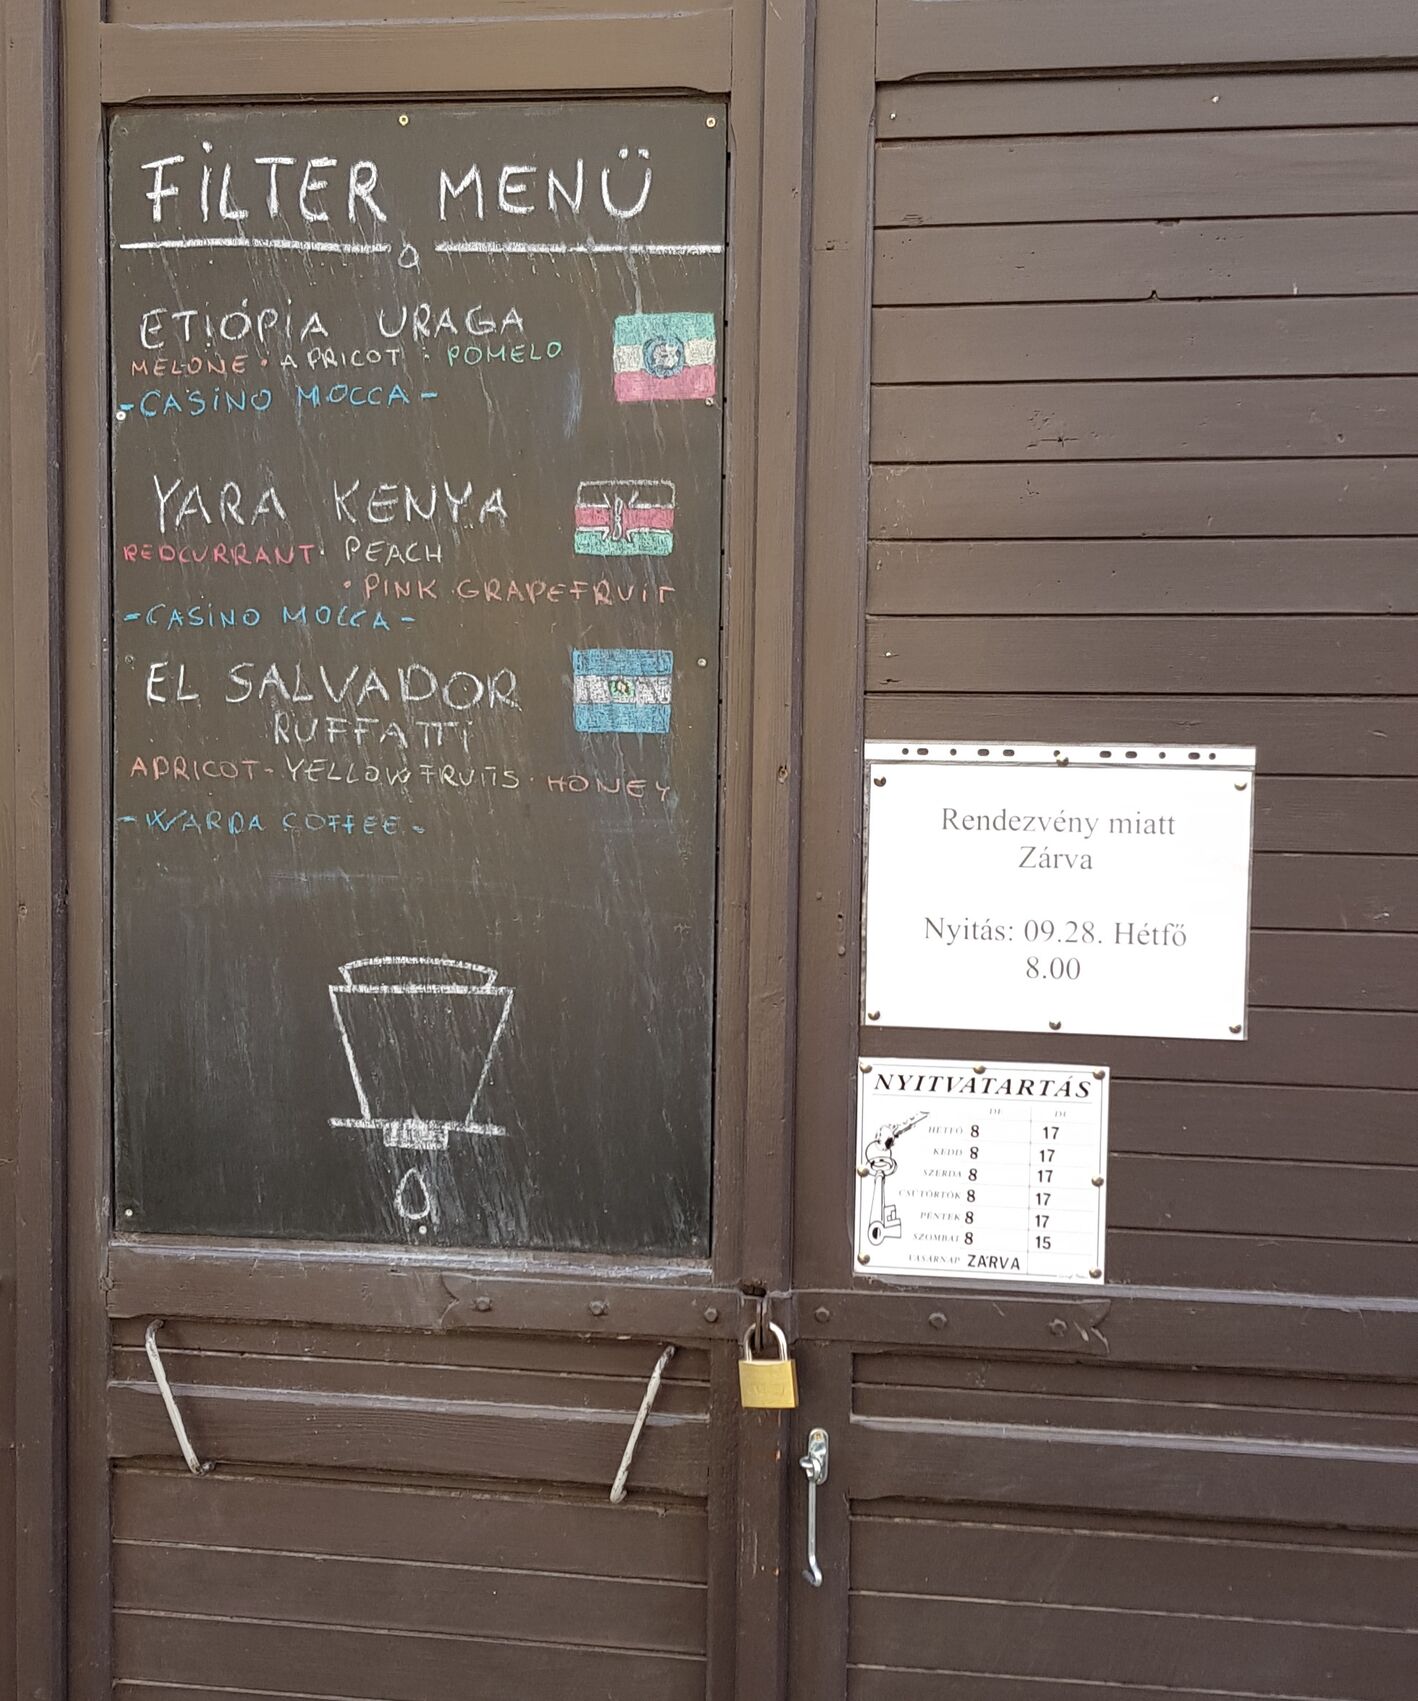 FILTER MENÜ
ETIÓPIA URAGA
MELONE · APRICOT · POMELO
- CASINO MOCCA -
YARA KENYA
REDCURRANT · PEACH
· PINK GRAPEFRUIT
- CASINO MOCCA -
EL SALVADOR
RUFFATTI
APRICOT - YELLOW FRUITS · HONEY
- WARDA COFFEE -
Rendezvény miatt
Zárva
Nyitás: 09.28. Hétfő
8.00
NYITVATARTÁS
DE DU
HÉTFŐ 8 17
KEDD 8 17
SZERDA 8 17
CSÜTÖRTÖK 8 17
PÉNTEK 8 17
SZOMBAT 8 15
VASÁRNAP ZÁRVA